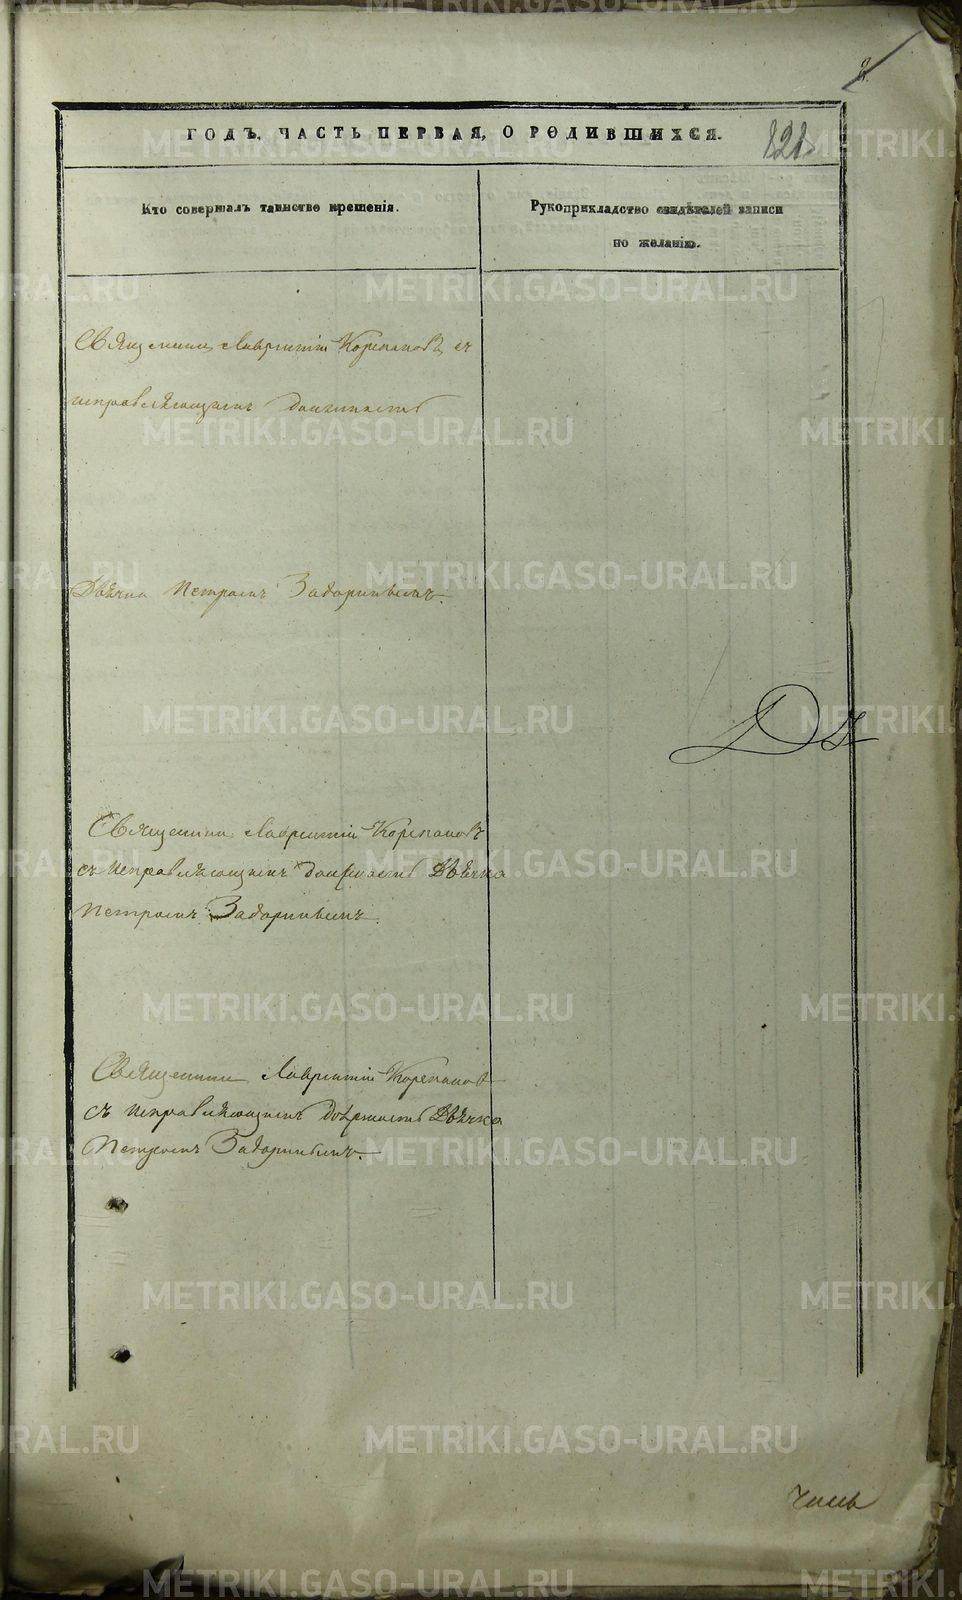 2.
ГОДЪ, ЧАСТЬ ПЕРВАЯ, О РОДИВШИХСЯ.
121
Кто совершалъ таинство крещенія.
Рукоприкладство свидѣтелей записи
по желанію.
Священник Лаврентій Корепановъ съ
исправляющимъ должность
Дьячка Петромъ Задоринымъ.
Священник Лаврентій Корепановъ
съ исправляющимъ должность Дьячка
Петромъ Задоринымъ.
Священник Лаврентій Корепановъ
съ исправляющимъ должность Дьячка
Петромъ Задоринымъ.
METRIKI.GASO-URAL.RU